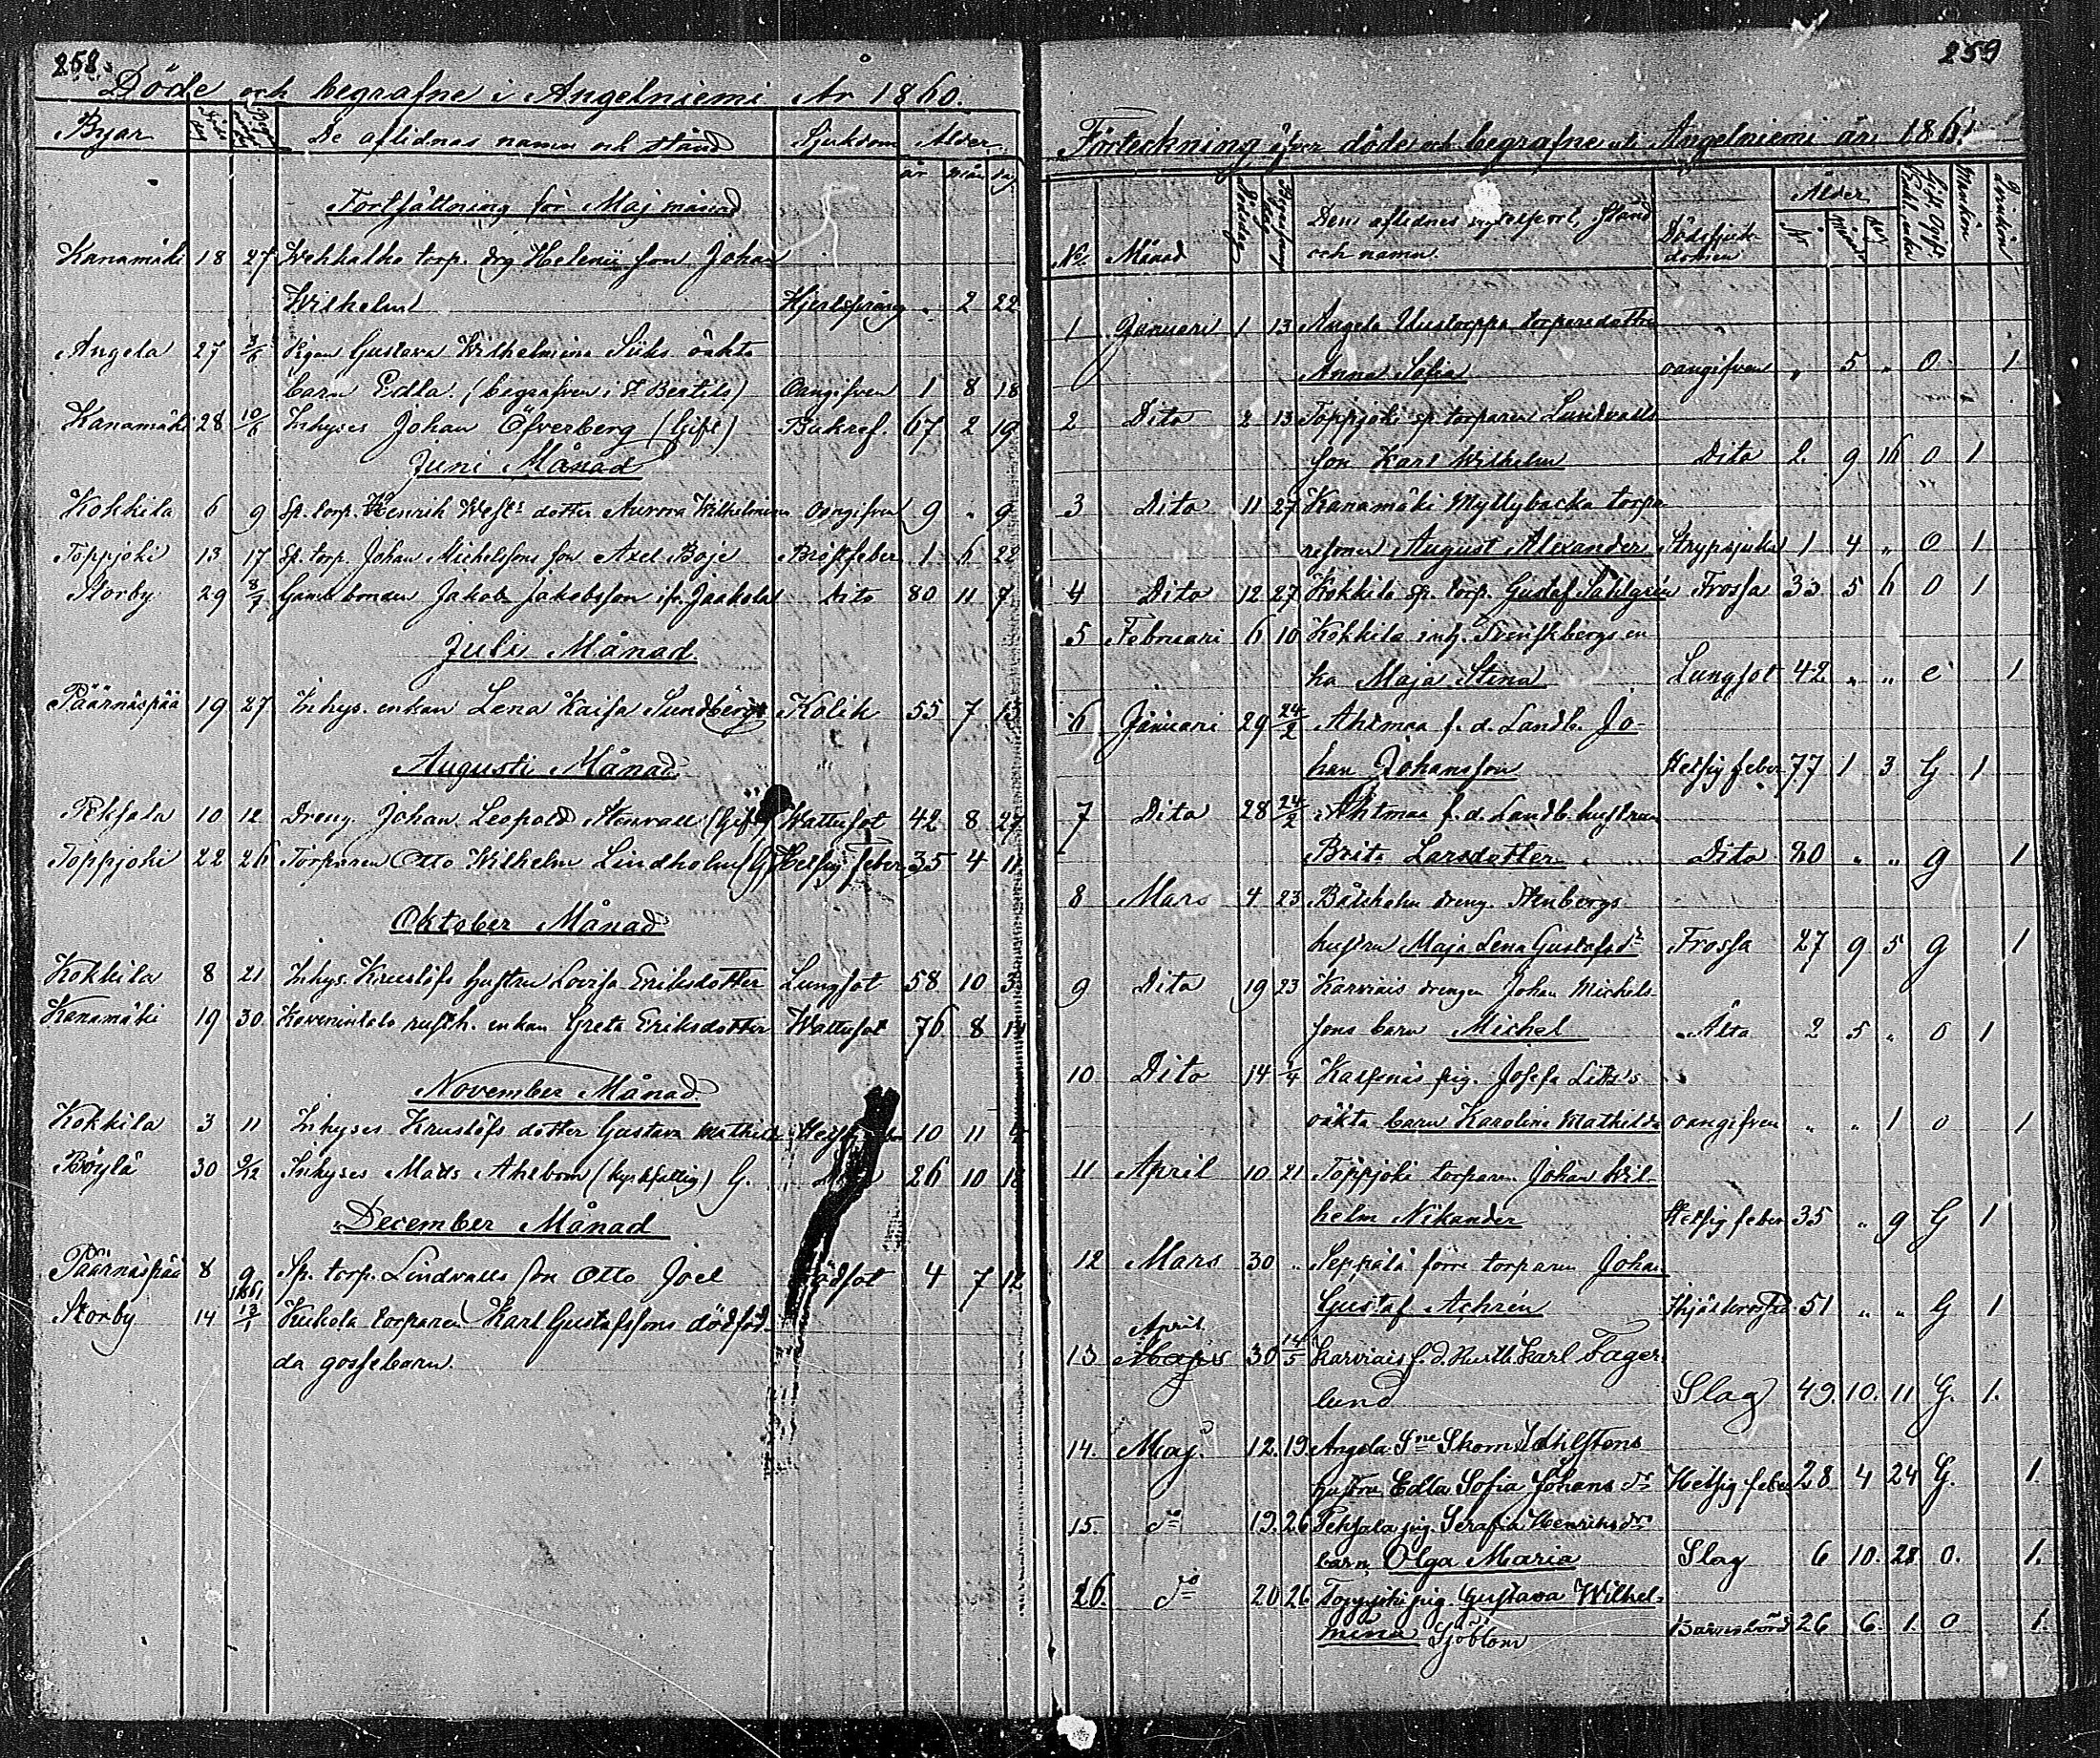 258
Döde och begrafne i Angelniemi År 1860.
Byar De aflidnas namn och stånd Sjukdom Ålder
år mån dag
Fortsättning för Maj månad
Kanamäki 18 27 torp. drg Helenii son Johan
Wilhelm Hjertsprång " 2 22
Angela 27 3/6 Pigan Gustava Wilhelmina Siiks oäkta
barn Edla. (begrafven i St Bertils) Oangifven 1 8 18
Kanamäki 28 10/6 Inhyses Johan Öfverberg (Gift) 67 2 19
Juni Månad
Kokkila 6 9 Sp. torp. Henrik West's dotter Aurora Wilhelmina Oangifven 9 " 9
Toppjoki 13 17 Sp. torp. Johan Michelssons son Axel Boje Bröstfeber 1 6 22
Storby 29 8/7 Gamla bonden Jakob Jakobsson ifr. Jaakola Dito 80 11 7
Juli Månad
Päärnäspää 19 27 Inhys. enkan Lena Kaisa Sundberg Kolik 55 7 15
Augusti Månad
Peksala 10 12 Dreng. Johan Leopold Stenvall (Gift) Wattusot 42 8 27
Toppjoki 22 26 Torparen Otto Wilhelm Lindholm (G) Hetsig feber 35 4 11
Oktober Månad
Kokkila 8 21 Inhys. Krustöfs hustru Lovisa Eriksdotter Lungsot 58 10 3
Kanamäki 19 30 rusth. enkan Greta Eriksdotter Wattusot 76 8 14
November Månad
Kokkila 3 11 Inhyses Krustöfs dotter Gustava Mathild 10 11 4
Pöylä 30 9/12 Inhyses Matts Ahlbom (kyrkfattig) G. 26 10 18
December Månad
Päärnäspää 8 9 Sp. torp. Lindvalls son Otto Joel 4 7 12
1861
Storby 14 13/1 Kukola torparen Karl Gustafssons dödföd-
da gossebarn.
259
Förteckning öfver döde och begrafne uti Angelniemi år 1861.
No. Månad Dödsdag Begrafningsdag Den aflidnes stånd Dödssjuk- Ålder
och namn. domen År Månad Dag Mankön Qvinkön
1 Januari 1 13 Angela Uustorppa torparedotter
Anna Sofia oangifven " 5 " O 1
2 Dito 2 13 Toppjoki sp. torparen Lundvalls
son Karl Wilhelm Dito 2 9 16 O 1
3 Dito 11 27 Kanamäki Myllybacka torpa-
resonen August Alexander Strypsjuka 1 4 " O 1
4 Dito 12 27 Kokkila sp. torp. Gustaf Sahlgrén Frossa 33 5 6 O 1
5 Februari 6 10 Kokkila inh. Svenskbergs en-
ka Maja Stina Lungsot 42 " " e 1
6 Januari 29 24/2 Ahtmaa f. d. Landb. Jo-
han Johansson Hetsig feber 77 1 3 G 1
7 Dito 28 24/2 Ahtmaa f. d. Landb. hustrun
Brita Larsdotter Dito 80 " " g 1
8 Mars 4 23 Båtsholm dreng. Stenbergs
hustru Maja Lena Gustafsdr Frossa 27 9 5 g 1
9 Dito 19 23 Karviais drengen Johan Michels-
sons barn Michel Älta 2 5 " O 1
10 Dito 14 1/4 pig. Josefa
oäkta barn Karolina Mathilda oangifven " " 1 O 1
11 April 10 21 Toppjoki torparen Johan Wil-
helm Nikander Hetsig feber 35 " 9 G 1
12 Mars 30 " Seppälä förre torparen Johan
Gustaf Achrén 51 " " G 1
April
13 Majs 30 14/5 Karviais f. d. Rusth. Karl Fager-
lund Slag 49. 10. 11 G. 1.
14. Maj. 12. 19 Angela Sne Skom. Dahlstens
hustru Edla Sofia Johansdr Hetsig feber 28 4 24 G. 1.
15. do 19. 26 Peksala pig. Serafia Henriksdrs
barn Olga Maria Slag 6 10. 28 O. 1.
26. do 20 26 Toppjoki pig. Gustava Wilhel-
mina Sjöblom Barnsbörd 26 6. 1. O 1.